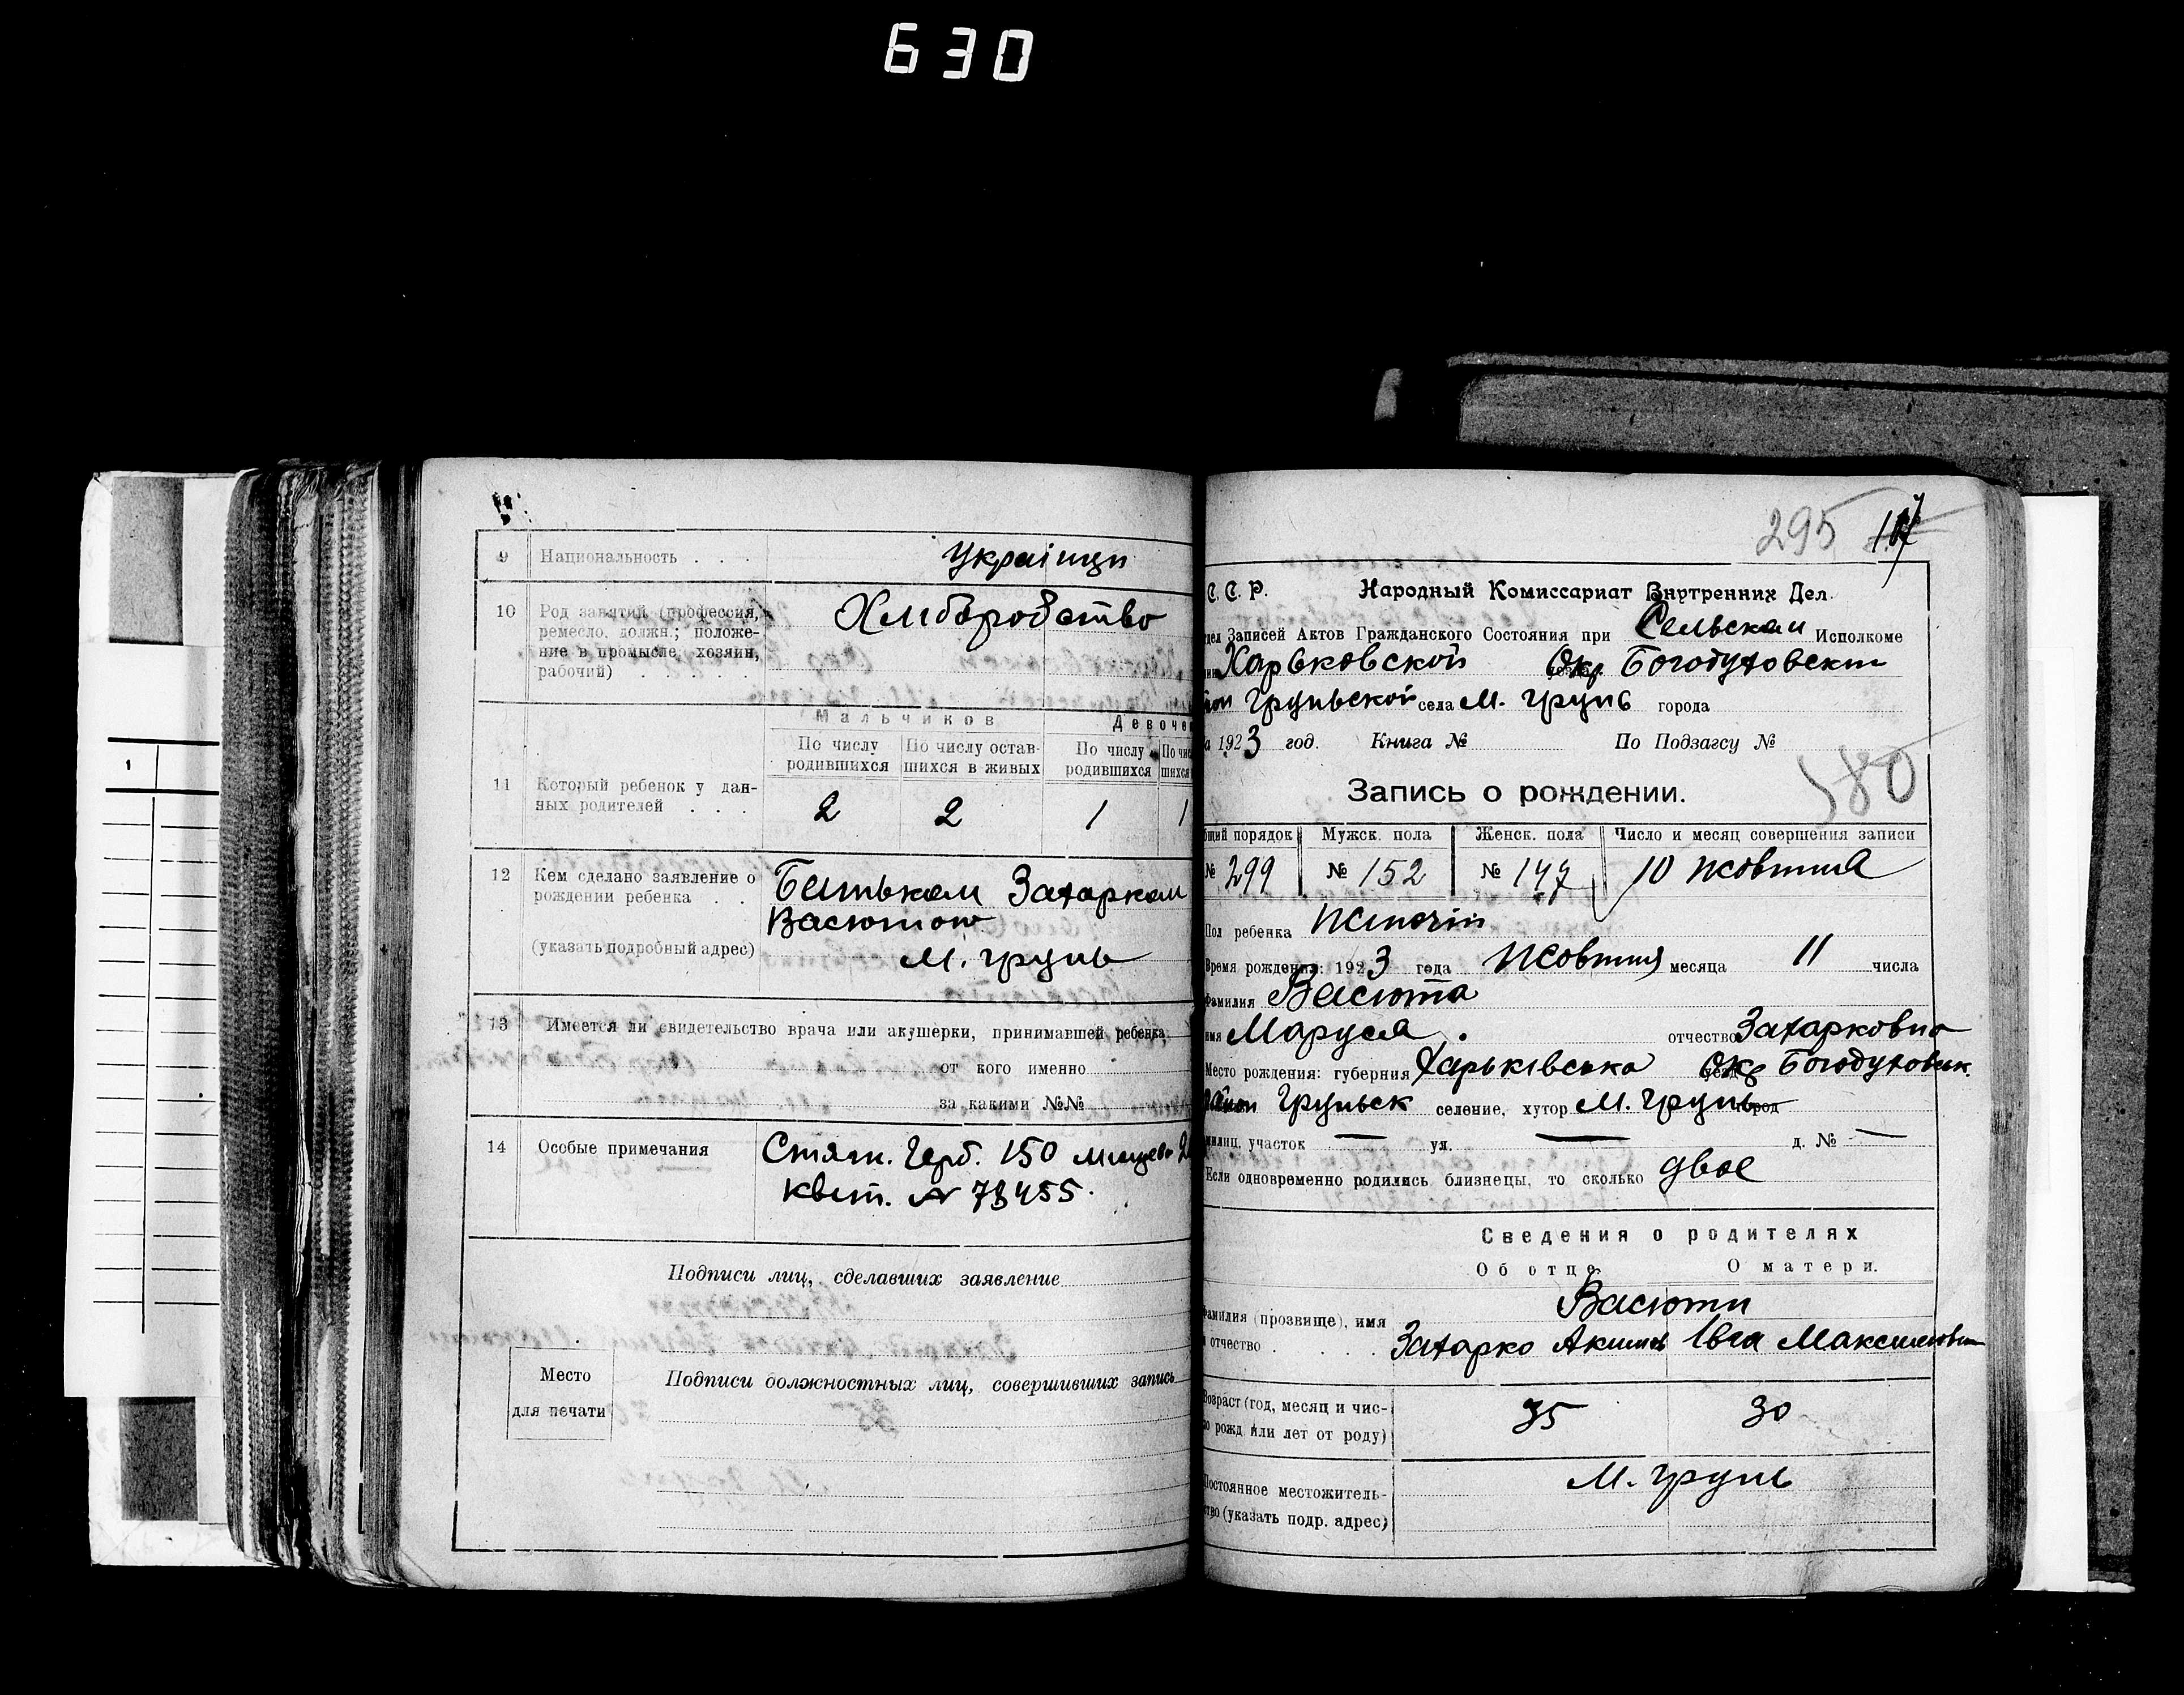 630
9 Национальность . . . Украінци
10 Род занятий (профессия, ремесло, должн.; положение в промысле, хозяин, рабочий) . . . . . Хліборобство
Мальчиков Девоче
По числу родившихся По числу оставшихся в живых По числу родившихся По чис шихся
11 Который ребенок у данных родителей . . . 2 2 1 1
12 Кем сделано заявление о рождении ребенка . . Батьком Захарком
Васютою
(указать подробный адрес) М. Грунь
13 Имеется ли свидетельство врача или акушерки, принимавшей ребенка,
от кого именно
за какими №№
14 Особые примечания Стягн. Герб. 150
Квит. № 73455.
Подписи лиц, сделавших заявление
Место для печати
Подписи должностных лиц, совершивших запись
295
С. С. Р. Народный Комиссариат Внутренних Дел.
дел Записей Актов Гражданского Состояния при Сельском Исполкоме
Харьковской Окр Богодуховский
Груньской села М. Грунь города
а 1923 год. Книга № По Подзагсу №
180
Запись о рождении.
бщий порядок Мужск. пола Женск. пола Число и месяц совершения записи
№ 299 № 152 № 147 10 жовтня
Пол ребенка жіночій
Время рождения: 1923 года жовтня месяца 11 числа
Фамилия Васюта
имя Маруся. отчество Захарковна
Место рождения: губерния Харьківська Окр Богодуховск.
район Груньск селение, хутор М. Грунь город
милиц. участок — ул. — д. № —
Если одновременно родились близнецы, то сколько двое
Сведения о родителях
Об отце. О матери.
Васюти
Фамилия (прозвище), имя
и отчество . . . . Захарко Акимов Івга Максимовн
Возраст (год, месяц и число рожд или лет от роду) 35 30
Постоянное местожительство (указать подр. адрес) М. Грунь
1